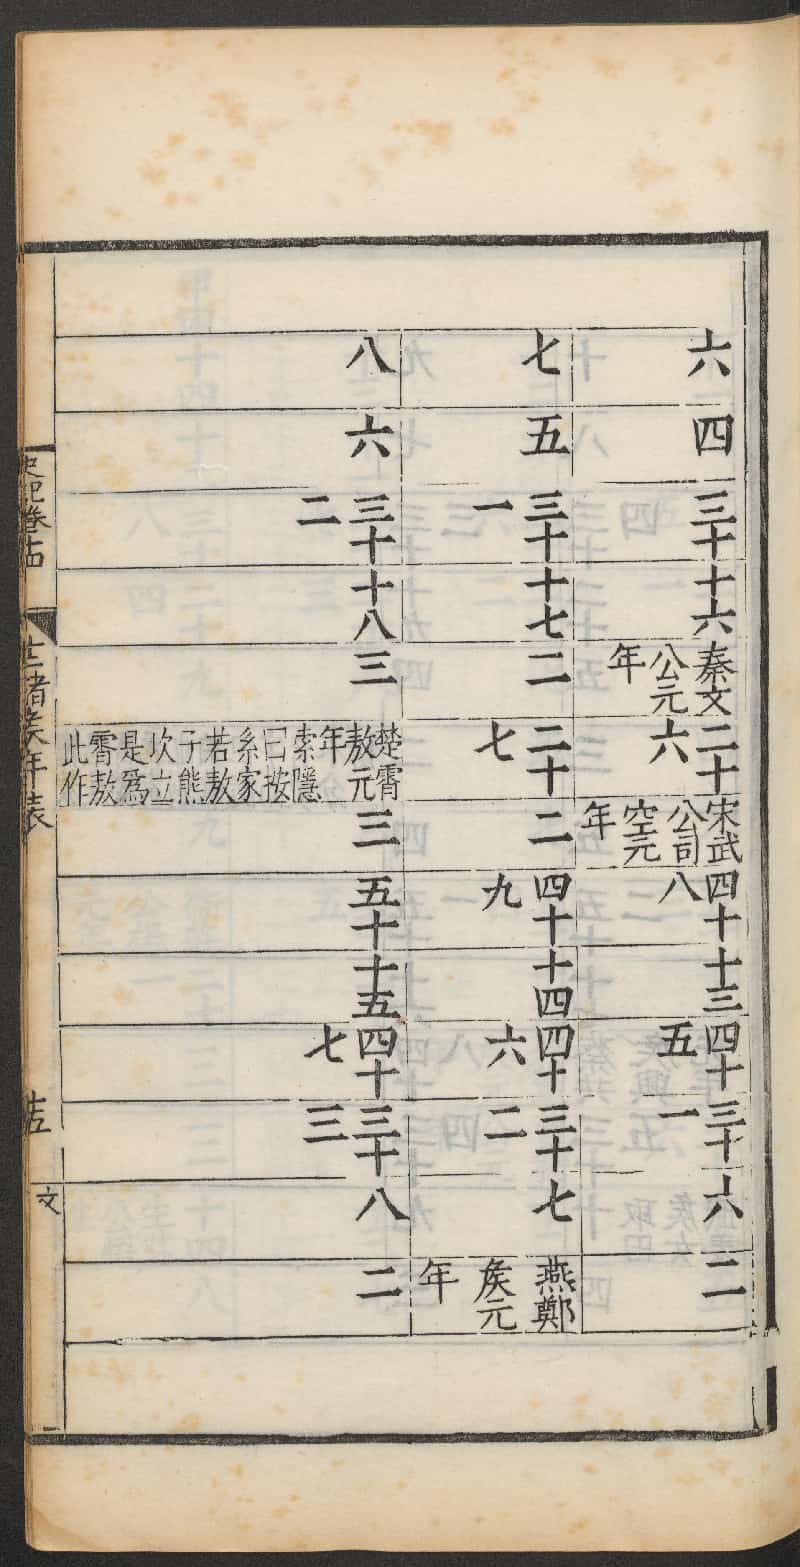 六
四
三十
十六
秦文
公元
年
二十
六
宋武
公司
空元
年
四十
八
十三
四十
五
三十
一
六
二
七
五
三十
一
十七
二
二十
七
二
四十
九
十四
四十
六
三十
二
七
燕鄭
矦元
年
八
六
三十
二
十八
三
楚霄
敖元
年
索隱
曰按
系家
若敖
子熊
坎立
是爲
霄敖
此作
三
五十
十五
四十
七
三十
三
八
二
史記卷十四
十二諸矦年表
十五
文